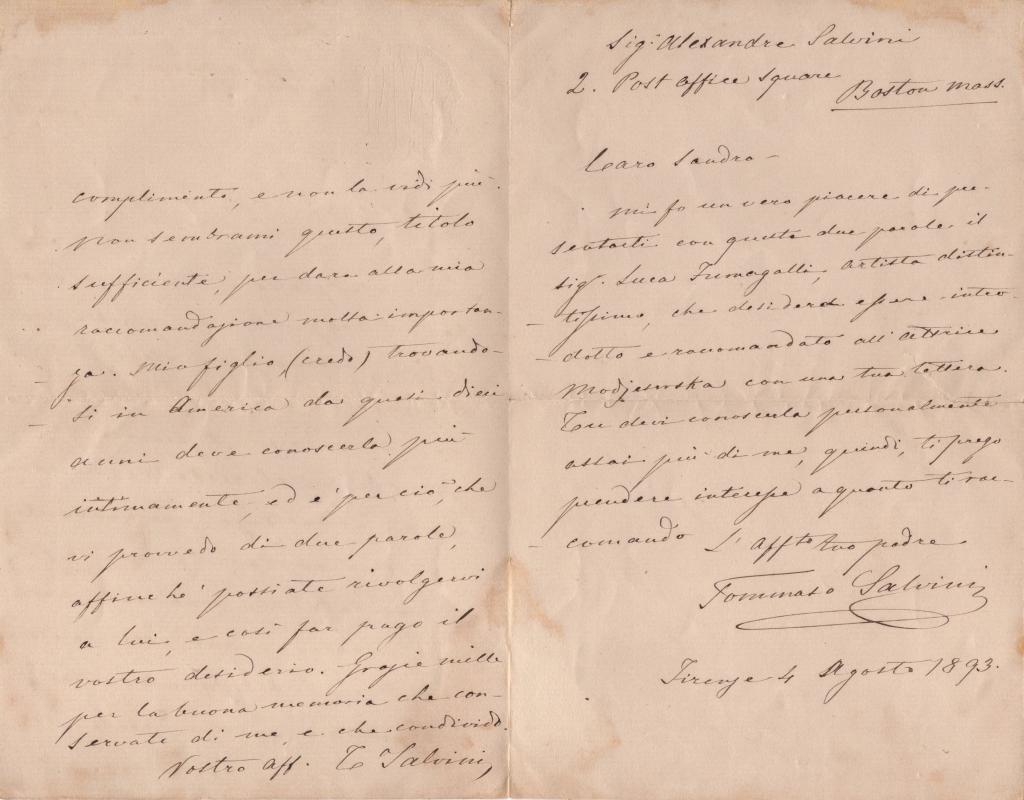 complimento, e non la vidi più.
Non sembrami questo, titolo
sufficiente, per dare alla mia
raccomandazione molta importan-
za. Mio figlio (credo) trovando-
si in America da quasi dieci
anni deve conoscerla più
intimamente, ed e' per ciò, che
vi provvedo di due parole,
affinchè possiate rivolgervi
a lui, e così far pago il
vostro desiderio. Grazie mille
per la buona memoria che con-
servate di me, e che condivido.
Vostro aff. T Salvini,
Sigr. Alexandre Salvini
2. Post Office Square
Boston Mass.
Caro Sandro –
Mi fo un vero piacere di pre-
sentarti con queste due parole il
sigr. Luca Fumagalli, artista distin-
tissimo, che desidera essere intro-
dotto e racomandato all'attrice
Modjesewska con una tua lettera.
Tu devi conoscerla personalmente
assai più di me, quindi, ti prego
prendere interesse a quanto ti rac-
comando
L'affto tuo padre
Tommaso Salvini
Firenze 4 Agosto 1893.